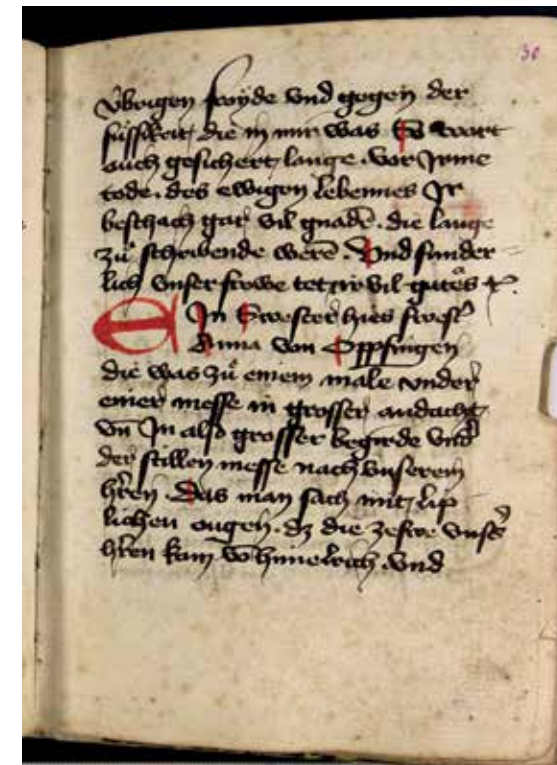 30
übrigen froyde vnd gegen der
süssikeit die in mir was Es wart
ouch gesichert lange vor Irme
tode . des ewigen lebennes Ir
beschach gar vil gnadē . die lange
zů schribende werē . Vnd sunder=
lich vnser frowe tet ir vil gůtes
EIn Swester hies swest͛
Anna von
die was zů einem male vnder
einer messe in grosser andacht
vn̄ In also grosser begirde vnd͛
der stillen messe nach vnserem
h̄ren . Das man sach mit lip
lichen ougen . dz die zeswe vns͛s
h̄ren kam vō himelrich . vnd